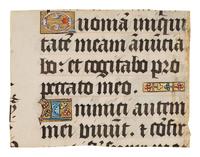 Quoniam iniqui
tatem meam annūcia
bo: et cogitabo pro
peccato meo.
Inimici autem
mei viuunt. et confir